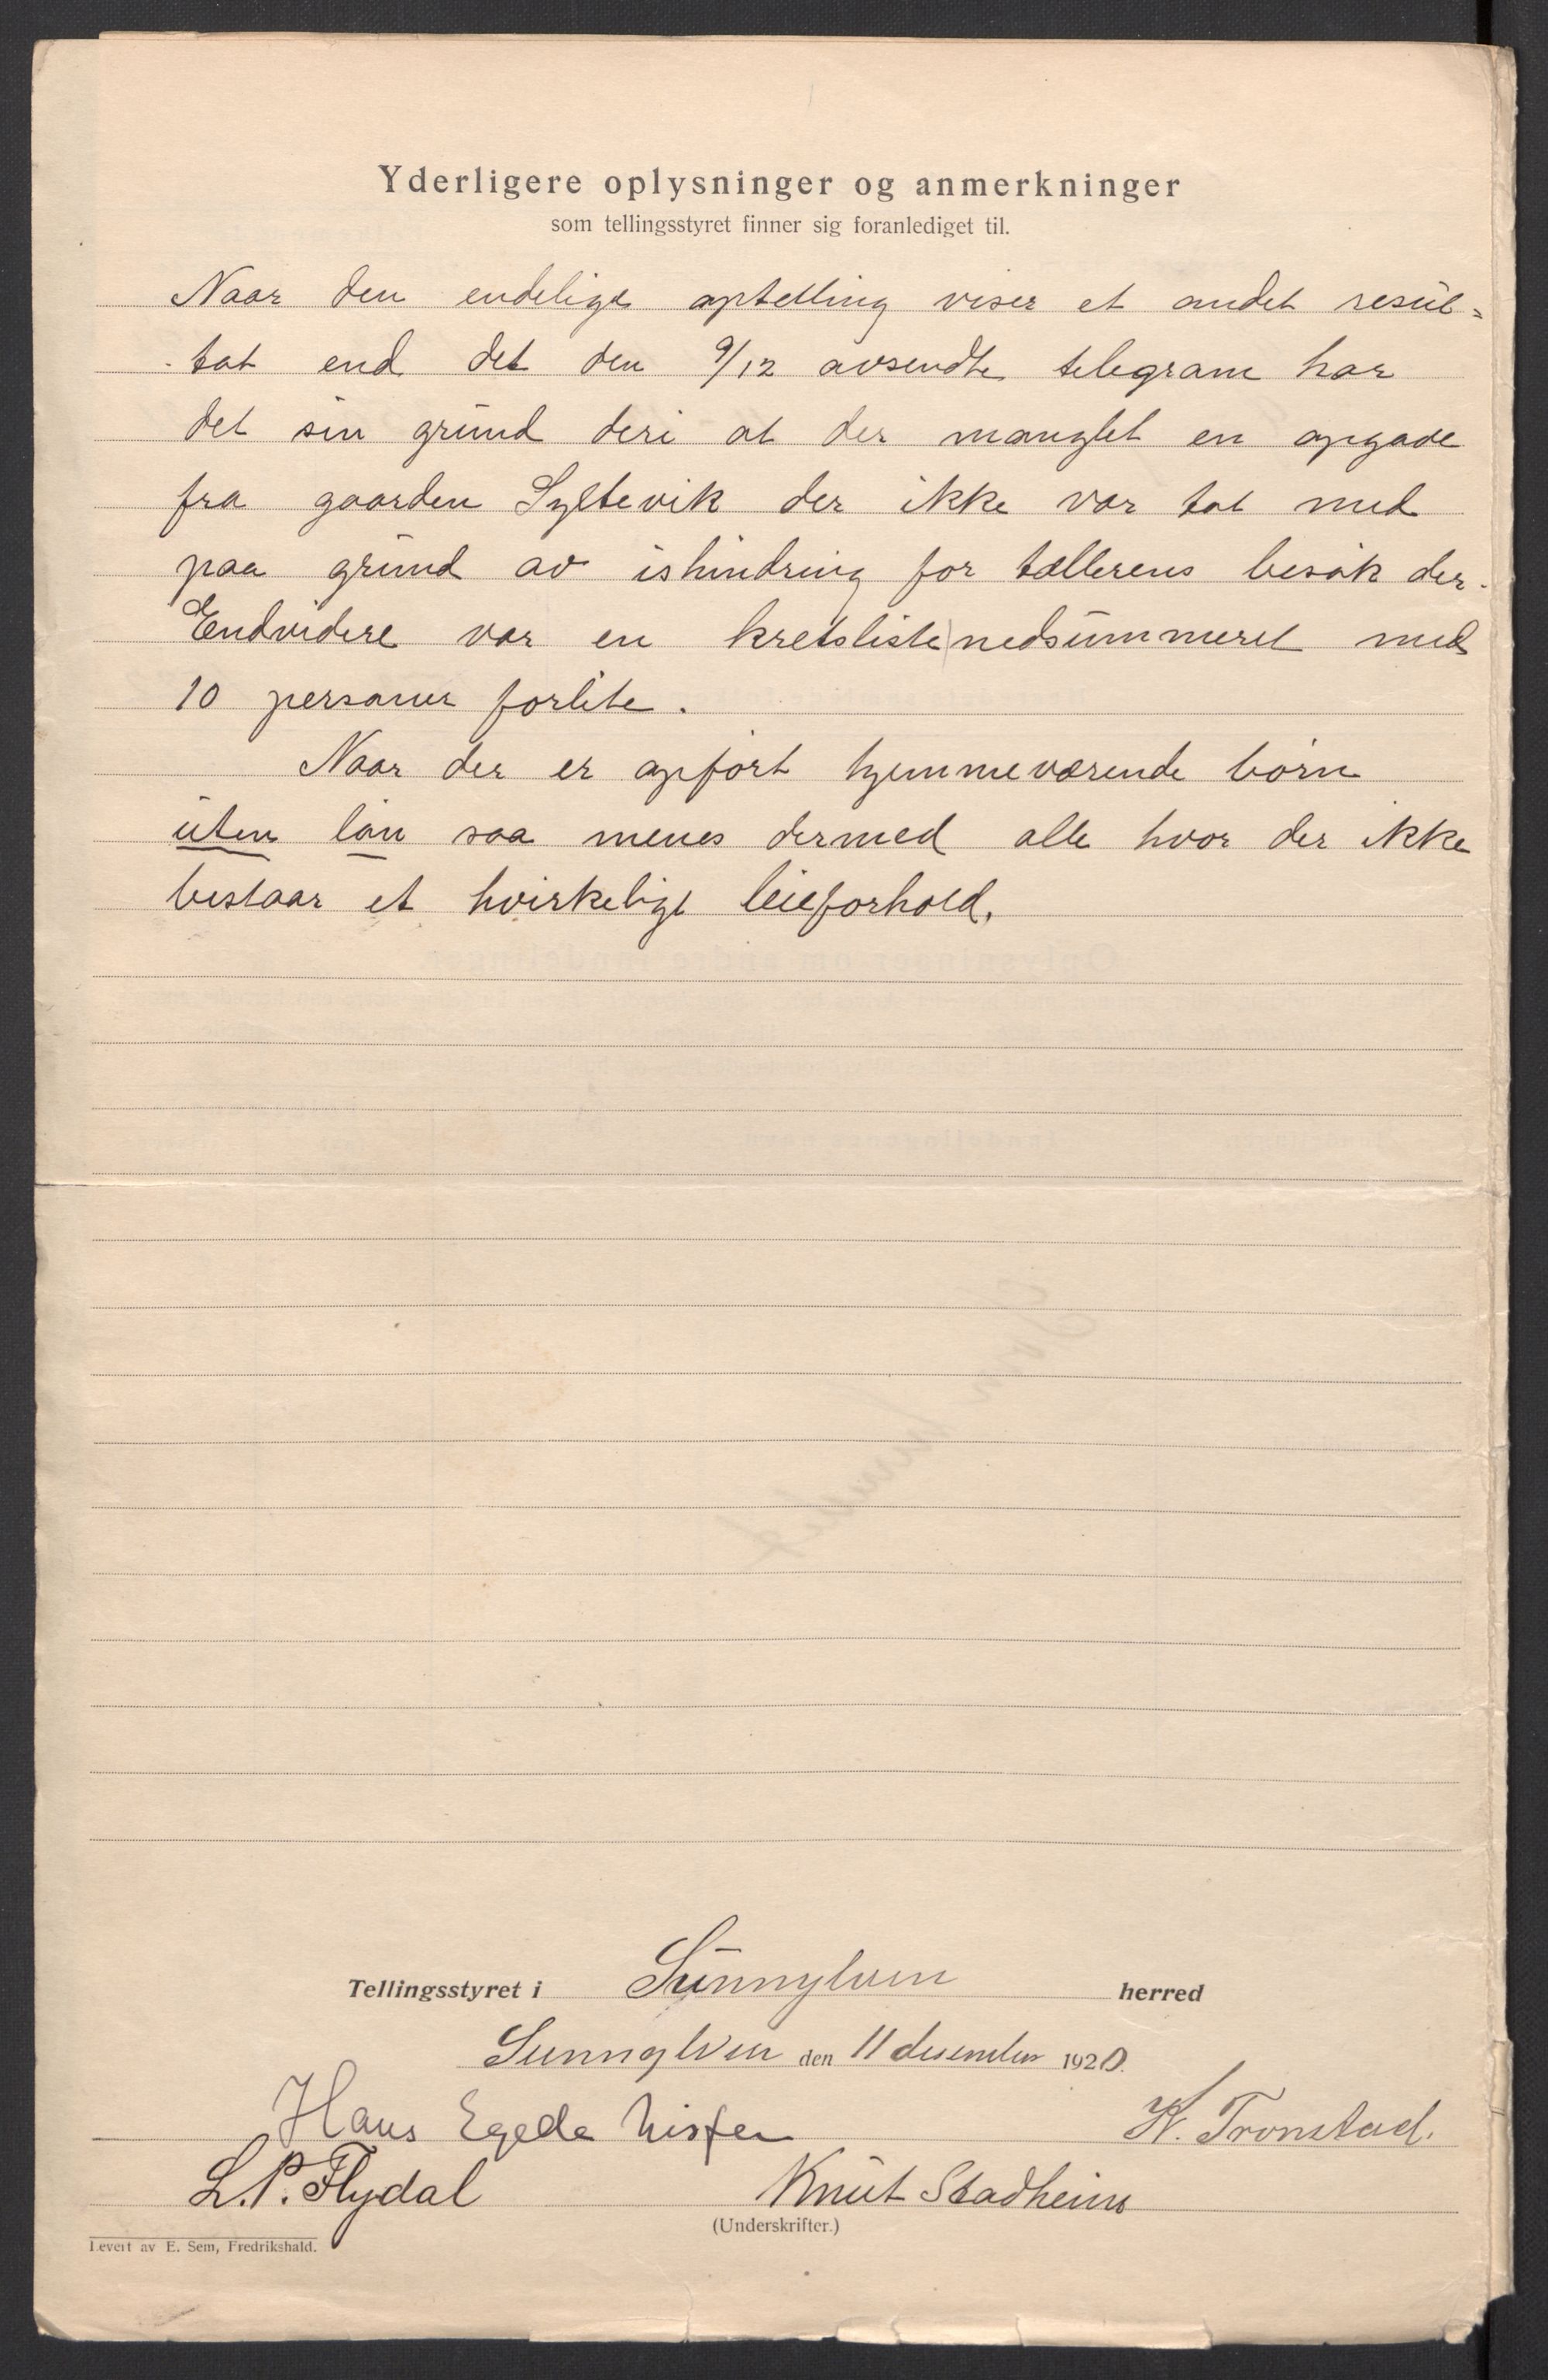 Yderligere oplysninger og anmerkninger
som tellingsstyret finner sig foranlediget til.
Naar den endelige optelling viser et andet resul=
tat end det den 9/12 avsendte telegram har
det sin grund deri at der manglet en opgave
fra gaarden Syltevik der ikke var tat med
paa grund av ishindring for tællerens besøk der.
Endvidere var en kretsliste nedsummeret med
10 personer forlite.
Naar der er opført hjemmeværende børn
uten løn saa menes dermed alle hvor der ikke
bestaar et hvirkeligt leieforhold.
Tellingsstyret i Sunnylven herred
Sunnylven den 11 desember 1920.
Hans Egede Nissen K. Tronstad.
L.P. Flydal Knut Stadheim
(Underskrifter.)
Levert av E. Sem, Fredrikshald.